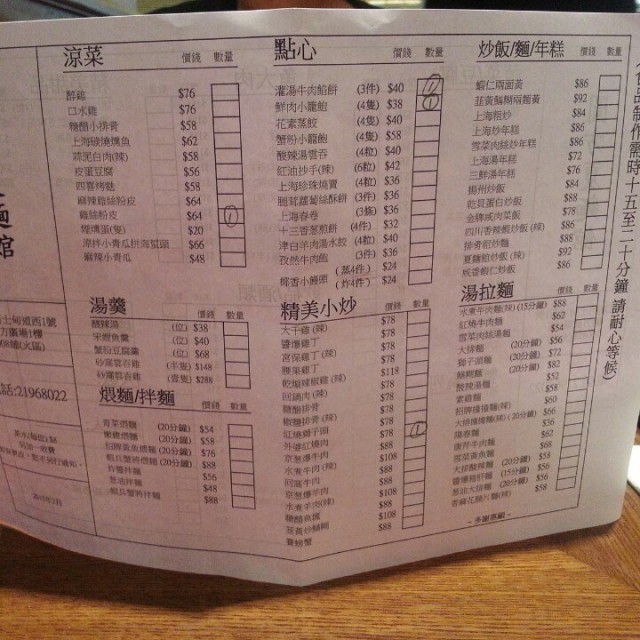 涼菜 價錢 數量
醉雞 $76
口水雞 $76
糖醋小排骨 $58
$62
蒜泥白肉(辣) $58
皮蛋豆腐 $56
四喜烤麩 $58
麻辣雞絲粉皮 $64
雞絲粉皮 $64
燻燶蛋(隻) $20
涼拌小青瓜拼海蜇頭 $66
麻辣小青瓜 $48
湯羹 價錢 數量
酸辣湯 (位) $38
宋嫂魚羹 (位) $40
蟹粉豆腐羹 (位) $68
砂窩雲吞雞 (半隻) $148
砂窩雲吞雞 (壹隻) $288
煨麵/拌麵 價錢 數量
青菜煨麵 (20分鐘) $54
嫩雞煨麵 (20分鐘) $58
(20分鐘) $76
(20分鐘) $88
炸醬拌麵 $56
葱油拌麵 $48
蝦兵蟹將拌麵 $88
點心 價錢 數量
灌湯牛肉餡餅 (3件) $40
鮮肉小籠飽 (4隻) $38
花素蒸餃 (4隻) $40
蟹粉小籠飽 (4隻) $58
酸辣湯雲吞 (4粒) $40
紅油抄手(辣) (6粒) $42
上海珍珠燒賣 (4粒) $36
臘茸蘿蔔絲酥餅 (3件) $36
上海春卷 (3條) $36
十三香葱油餅 (4件) $32
津白羊肉湯水餃 (4粒) $40
孜然牛肉飽 (3件) $36
椰香小饅頭 (蒸4件) $24
(炸4件) $24
精美小炒 價錢 數量
大千雞(辣) $78
醬爆雞丁 $78
宮保雞丁(辣) $78
腰果雞丁 $78
乾煸辣椒雞(辣) $118
回鍋肉(辣) $78
糖醋排骨 $78
椒鹽排骨(辣) $78
紅燒獅子頭 $78
外婆紅燒肉 $88
京葱爆羊肉 $108
水煮牛肉(辣) $88
回鍋牛肉 $88
京葱爆牛肉 $88
水煮羊肉(辣) $108
糖醋魚塊 $88
$88
賽螃蟹 $88
炒飯/麵/年糕 價錢 數量
蝦仁兩面黃 $86
韮黃鱔糊兩麵黃 $92
上海粗炒 $84
上海炒年糕 $86
雪菜肉絲炒年糕 $86
上海湯年糕 $72
三鮮湯年糕 $76
揚州炒飯 $84
乾貝蛋白炒飯 $88
金牌咸肉菜飯 $78
四川香辣蝦炒飯(辣) $86
排骨粗炒麵 $88
(辣) $92
咸香蝦仁炒飯 $86
湯拉麵 價錢 數量
水煮牛肉麵(辣) (15分鐘) $88
紅燒牛肉麵 $62
雪菜肉絲湯麵 $54
大排麵 (20分鐘) $56
獅子頭麵 (20分鐘) $72
鱔糊麵 $82
酸辣湯麵 $58
素菜麵 $56
(20分鐘) $56
(20分鐘) $66
陽春麵 $36
$62
雪菜黃魚麵 $68
大排酸辣麵 (20分鐘) $58
(15分鐘) $56
葱油大排麵 (20分鐘) $56
$58
~ 多謝惠顧 ~
製作需時十五至二十分鐘 請耐心等候)
21968022
2015年2月